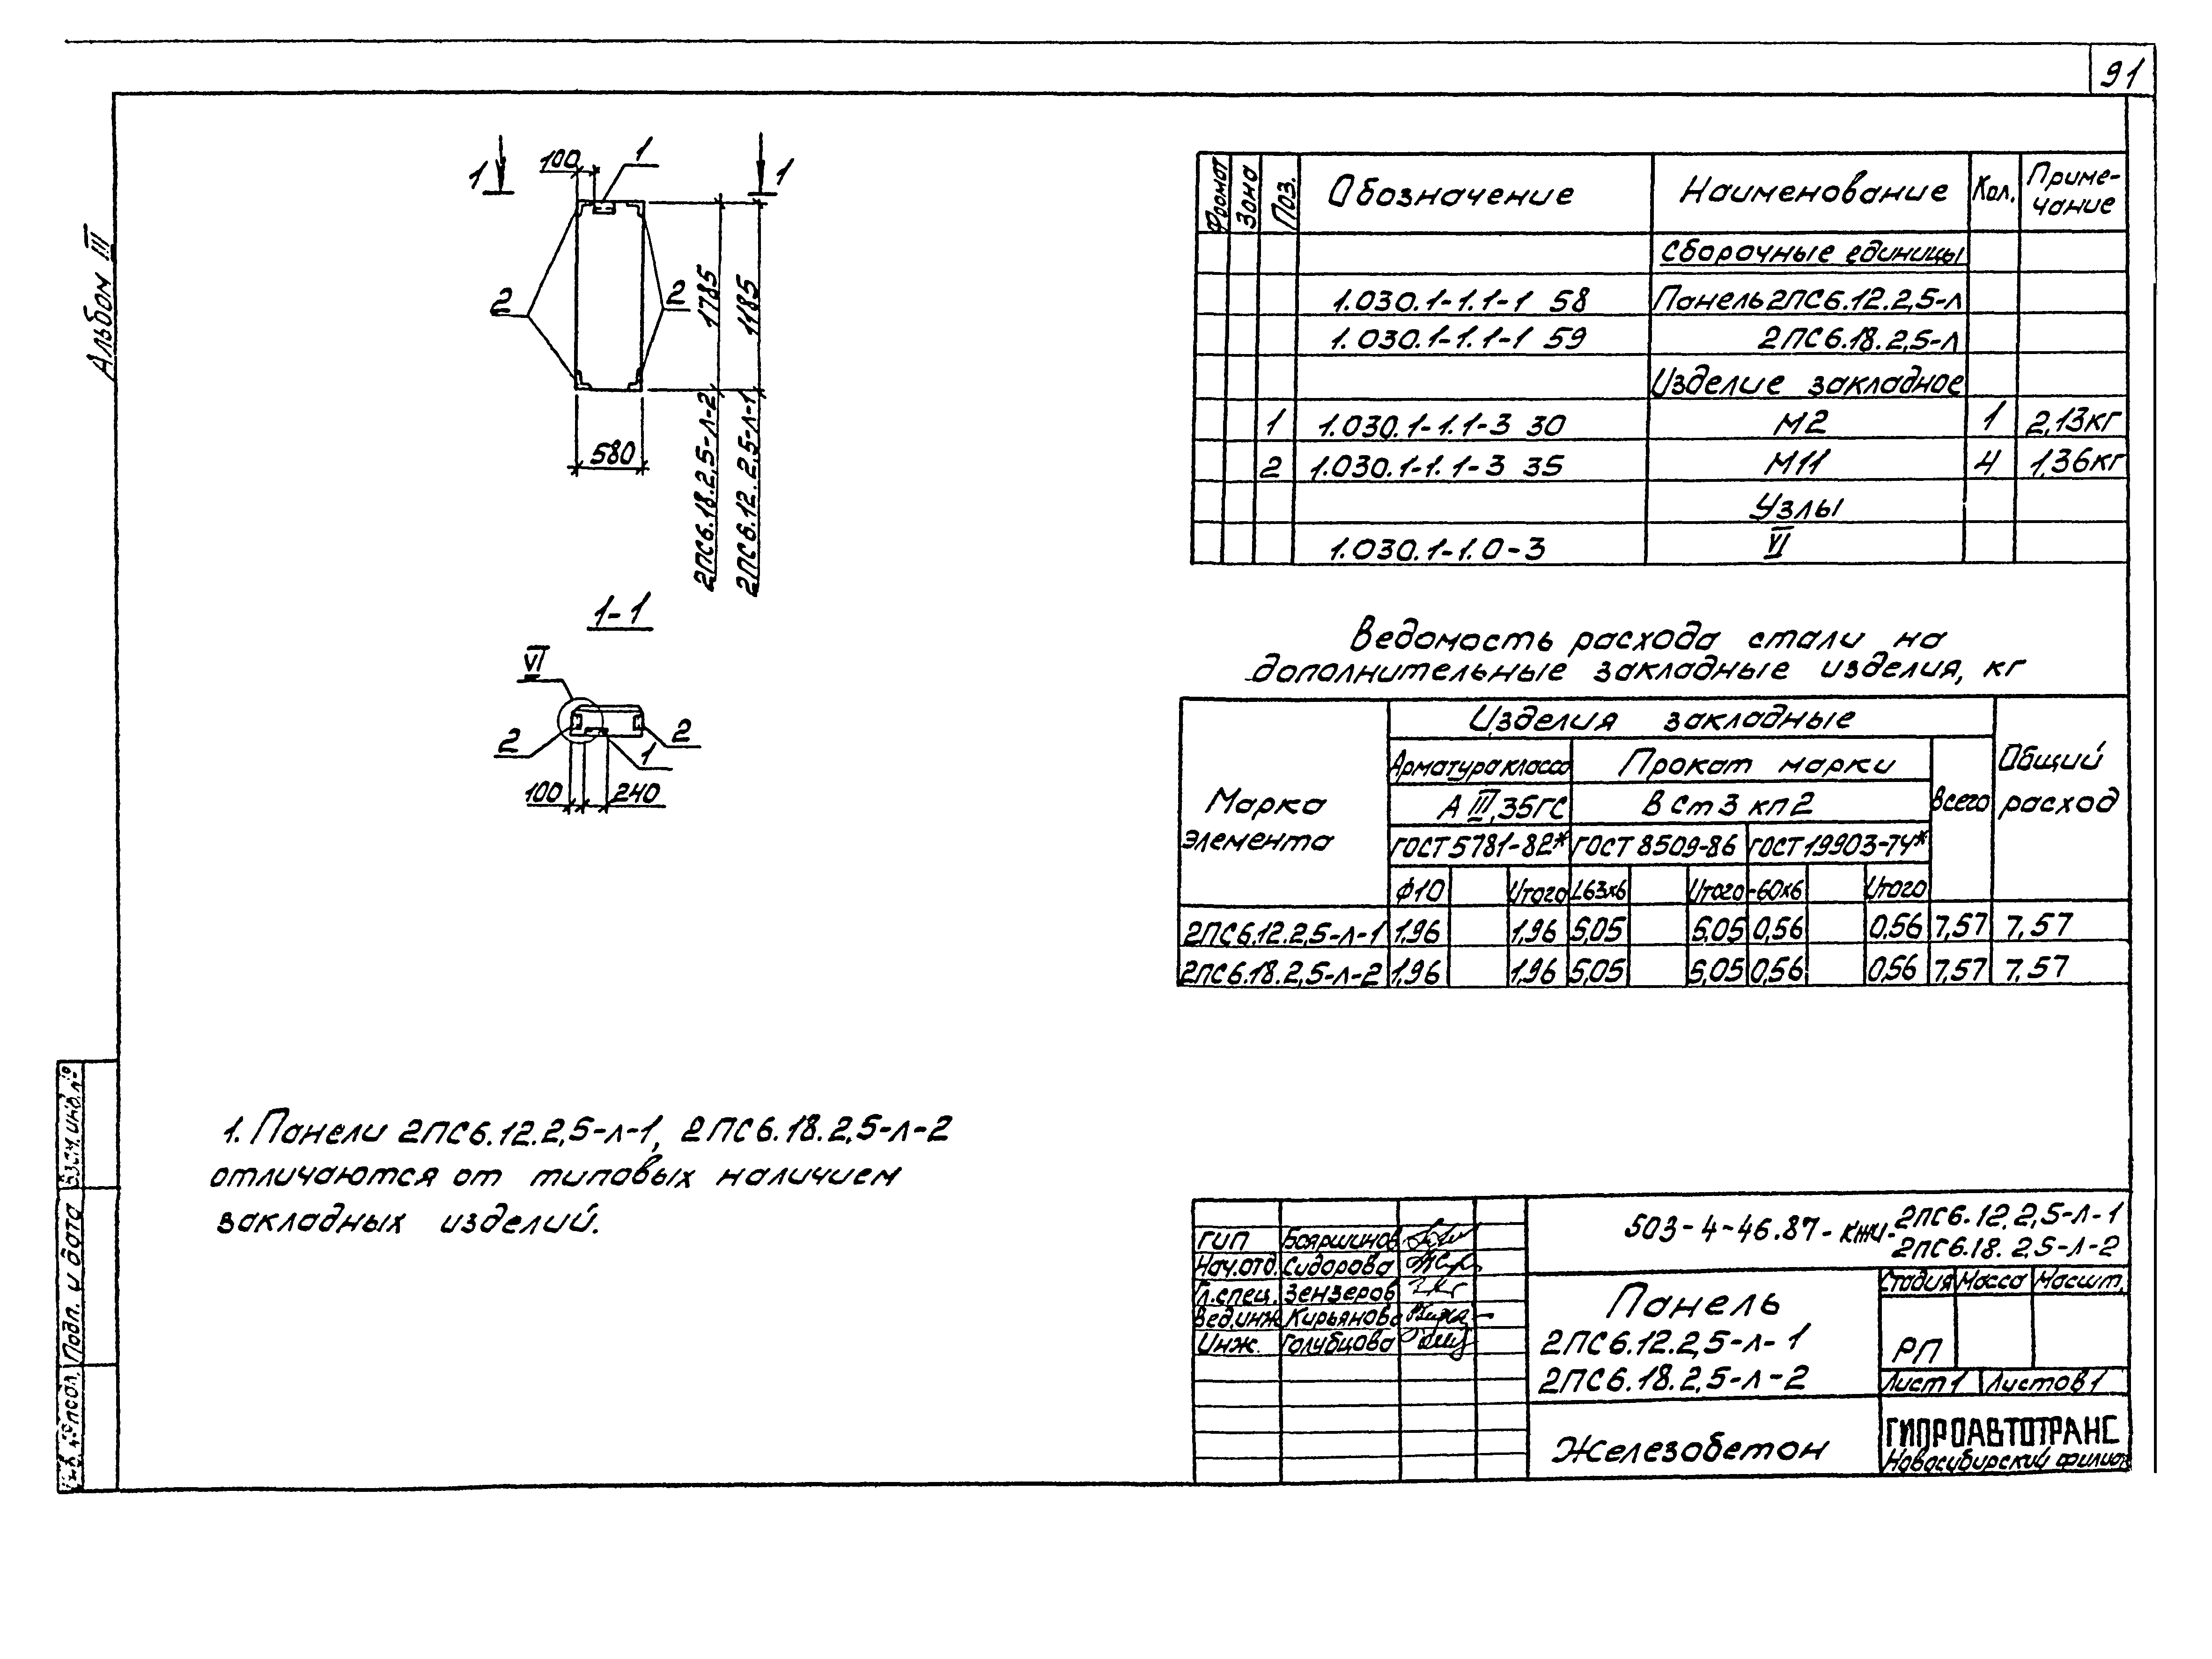 91
Альбом III
1
100
1
1
2
2
1785
1185
580
2ПС6.18.2,5-л-2
2ПС6.12.2,5-л-1
1-1
VI
2
2
1
100
240
Формат Зона Поз. Обозначение Наименование Кол. Приме-
чание
Сборочные единицы
1.030.1-1.1-1 58 Панель 2ПС6.12.2,5-л
1.030.1-1.1-1 59 2ПС6.18.2,5-л
Изделие закладное
1 1.030.1-1.1-3 30 М2 1 2,13кг
2 1.030.1-1.1-3 35 М11 4 1,36кг
Узлы
1.030.1-1.0-3 VI
Ведомость расхода стали на
дополнительные закладные изделия, кг
Марка
элемента
Изделия закладные
Общий
расход
Арматура класса Прокат марки
Всего
А III, 35ГС В Ст 3 кп 2
ГОСТ 5781-82* ГОСТ 8509-86 ГОСТ 19903-74*
Ф10 Итого L63х6 Итого -60х6 Итого
2ПС6.12.2,5-л-1 1,96 1,96 5,05 5,05 0,56 0,56 7,57 7,57
2ПС6.18.2,5-л-2 1,96 1,96 5,05 5,05 0,56 0,56 7,57 7,57
1. Панели 2ПС6.12.2,5-л-1, 2ПС6.18.2,5-л-2
отличаются от типовых наличием
закладных изделий.
503-4-46.87-КЖИ-2ПС6.12.2,5-л-1
2ПС6.18.2,5-л-2
ГИП Бояршинов
Нач.отд. Сидорова
Гл.спец. Зензеров
Вед.инж Кирьянова
Инж. Голубцова
Панель
2ПС6.12.2,5-л-1
2ПС6.18.2,5-л-2
Стадия Масса Масшт.
РП
Лист 1 Листов 1
Железобетон
ГИПРОАВТОТРАНС
Новосибирский филиал
Взам.инв.№
Подп. и дата